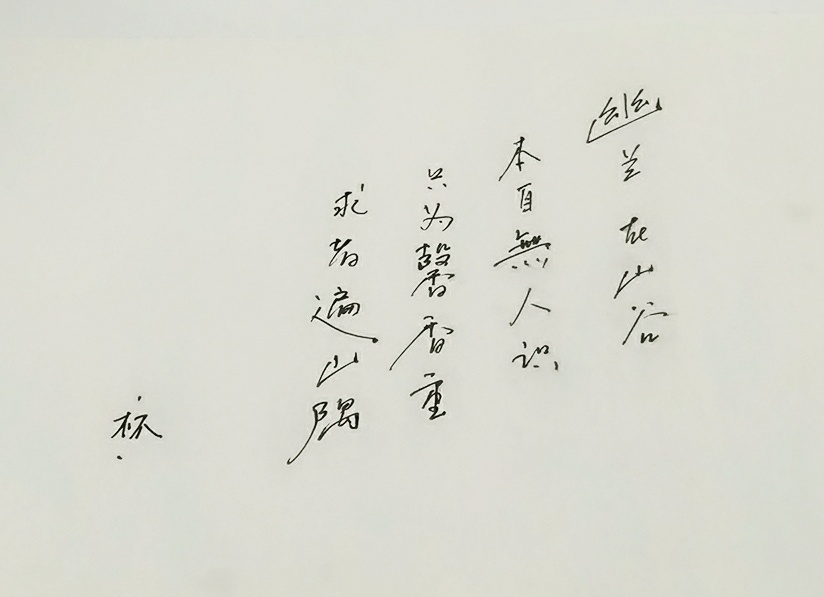 幽兰在山谷
本自無人识
只为馨香重
求者遍山隅